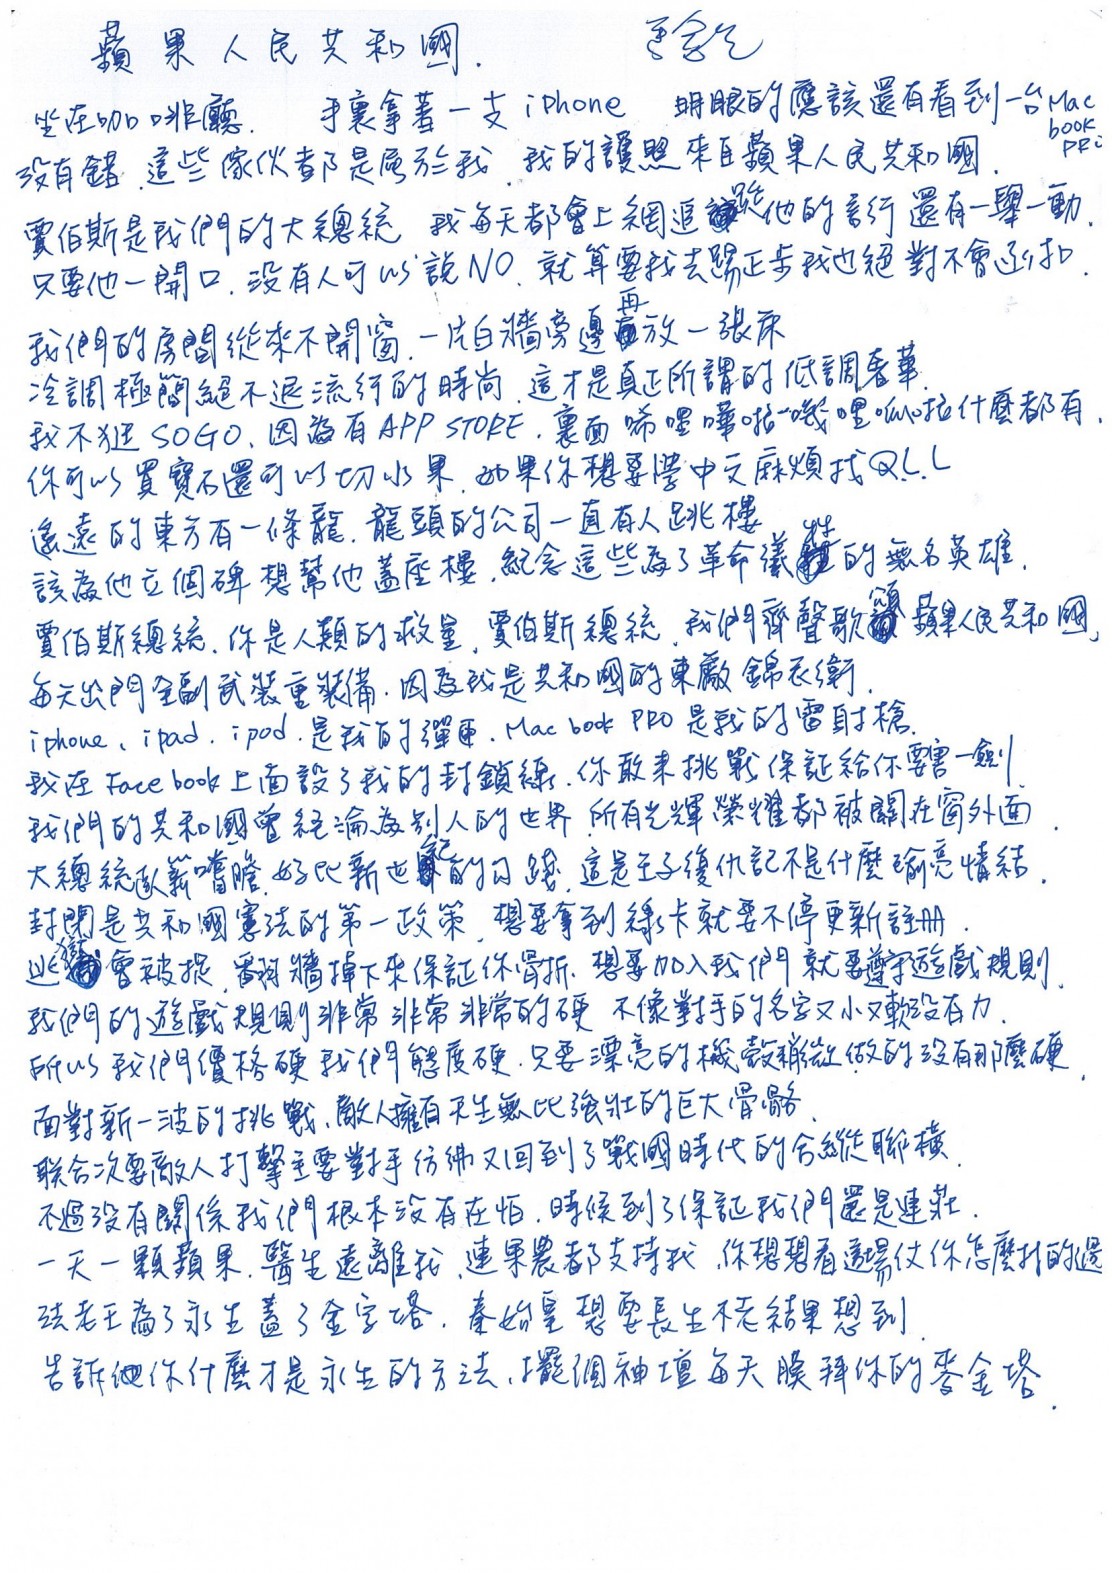 蘋果人民共和國.
坐在咖啡廳. 手裏拿著一支 iphone 明眼的應該還有看到一台 Mac book PRO
沒有錯. 這些傢伙都是屬於我. 我的護照來自蘋果人民共和國.
賈伯斯是我們的大總統 我每天都會上網追蹤他的言行 還有一舉一動.
只要他一開口. 沒有人可以說NO. 就算要我去踢正步我也絕對不會
我們的房間從來不開窗. 一片白牆旁邊再放一張床
冷調極簡絕不退流行的時尚. 這才是真正所謂的低調奢華.
我不逛 SOGO. 因為有 APP STORE. 裏面唏哩嘩啦嘰哩呱啦什麼都有.
你可以買寶石還可以切水果. 如果你想要學中文麻煩找Q.L.L
遙遠的東方有一條龍. 龍頭的公司一直有人跳樓
該為他立個碑 想幫他蓋座樓. 紀念這些為了革命犧牲的無名英雄.
賈伯斯總統. 你是人類的救星. 賈伯斯總統. 我們齊聲歌頌 蘋果人民共和國.
每天出門全副武裝重裝備. 因為我是共和國的東廠錦衣衛.
iphone、ipad. ipod. 是我的彈匣. Mac book PRO 是我的雷射槍.
我在 Face book 上面設了我的封鎖線. 你敢來挑戰保証給你要害一劍
我們的共和國曾經淪為別人的世界. 所有光輝榮耀都被關在窗外面.
大總統臥薪嚐膽. 好比新世紀的勾踐. 這是王子復仇記不是什麼瑜亮情結.
封閉是共和國憲法的第一政策. 想要拿到綠卡就要不停更新註冊.
逃獄會被捉. 翻牆掉下來保証你骨折. 想要加入我們就要遵守遊戲規則.
我們的遊戲規則非常非常非常的硬 不像對手的名字又小又軟沒有力.
所以我們價格硬我們態度硬. 只要漂亮的機殼稍微做的沒有那麼硬.
面對新一波的挑戰. 敵人擁有天生無比強壯的巨大骨骼.
聯合次要敵人打擊主要對手彷彿又回到了戰國時代的合縱聯橫.
不過沒有關係我們根本沒有在怕. 時候到了保証我們還是連莊.
一天一顆蘋果. 醫生遠離我. 連果農都支持我. 你想想看這場仗你怎麼打的過
法老王為了永生蓋了金字塔. 秦始皇想要長生不老結果想到.
告訴你什麼才是永生的方法. 擺個神壇每天膜拜你的麥金塔.